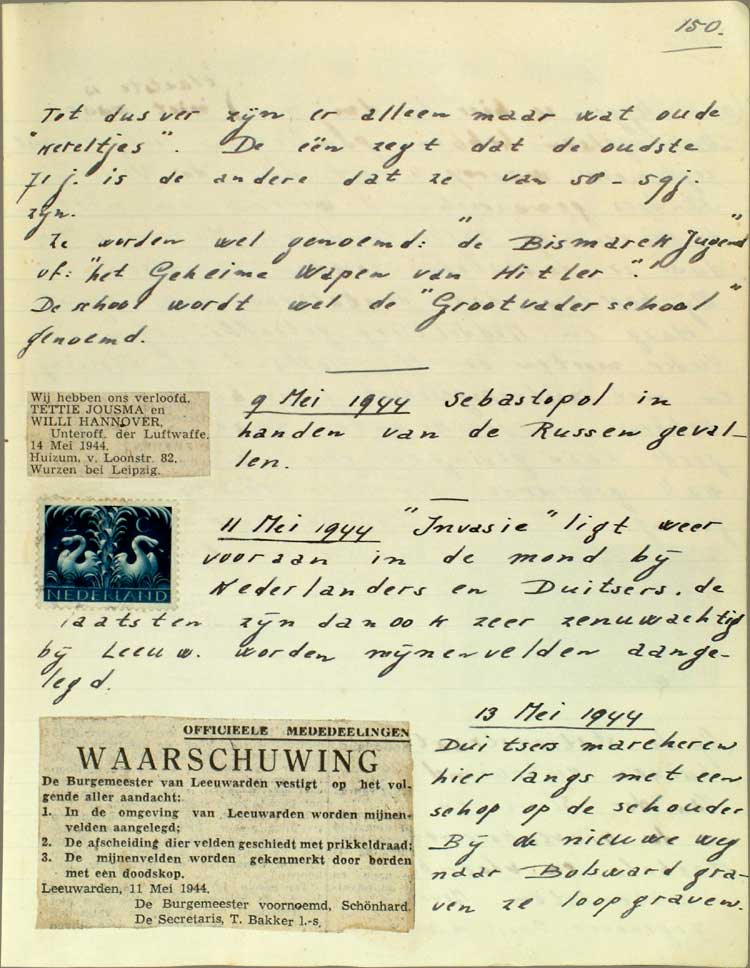 150.
Tot dusver zijn er alleen maar wat oude
"kereltjes". De eén zegt dat de oudste
71 j. is de andere dat ze van 50 - 59j.
zijn.
Ze worden wel genoemd: "de Bismarck Jugend"
of: "het Geheime Wapen van Hitler".
De school wordt wel de "Grootvader school"
genoemd.
Wij hebben ons verloofd.
TETTIE JOUSMA en
WILLI HANNOVER,
Unteroff. der Luftwaffe.
14 Mei 1944.
Huizum, v. Loonstr. 82.
Wurzen bei Leipzig.
9 Mei 1944 Sebastopol in
handen van de Russen geval-
len.
2 C
NEDERLAND
11 Mei 1944 "Invasie" ligt weer
vooraan in de mond bij
Nederlanders en Duitsers. de
laatsten zijn dan ook zeer zenuwachtig
bij Leeuw. worden mijnenvelden aange-
legd.
OFFICIEELE MEDEDEELINGEN
WAARSCHUWING
De Burgemeester van Leeuwarden vestigt op het vol-
gende aller aandacht:
1. In de omgeving van Leeuwarden worden mijnen-
velden aangelegd;
2. De afscheiding dier velden geschiedt met prikkeldraad;
3. De mijnenvelden worden gekenmerkt door borden
met een doodskop.
Leeuwarden, 11 Mei 1944.
De Burgemeester voornoemd, Schönhard.
De Secretaris, T. Bakker l.-s.
13 Mei 1944
Duitsers marcheren
hier langs met een
schop op de schouder
Bij de nieuwe weg
naar Bolsward gra-
ven ze loopgraven.